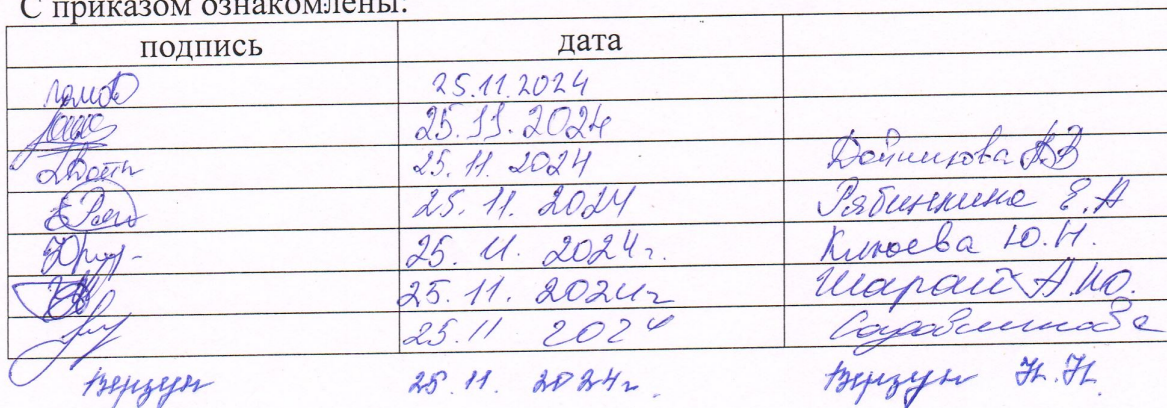 С приказом ознакомлены:
подпись дата
25.11.2024
25.11.2024
25.11.2024 Дойникова
25.11.2024 Рябинкина Е.А
25.11.2024г. Клюева Ю.Н.
25.11.2024г Шарай А.Ю.
25.11 2024
Верзун 25.11.2024г. Верзун Н.Н.